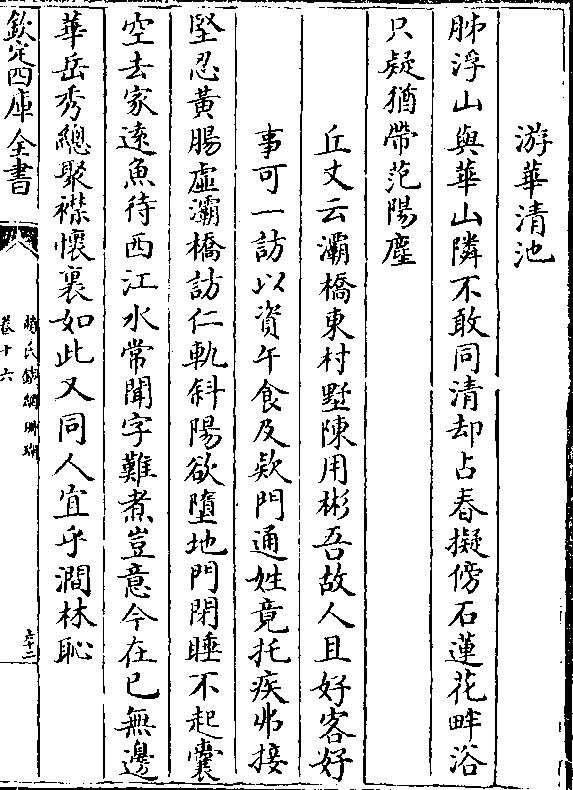 游華清池
胏浮山與華山隣不敢同清却占春擬傍石蓮花畔浴
只疑猶帶范陽塵
丘丈云灞橋東村墅陳用彬吾故人且好客好
事可一訪以資午食及欵門通姓竟托疾弗接
堅忍黃腸虛灞橋訪仁軌斜陽欲墮地門閉睡不起囊
空去家遠魚待西江水常聞字難煮豈意今在已無邊
華岳秀總聚襟懷裏如此又同人宜乎澗林恥
欽定四庫全書
趙氏鐵網珊瑚
卷十六
六十三